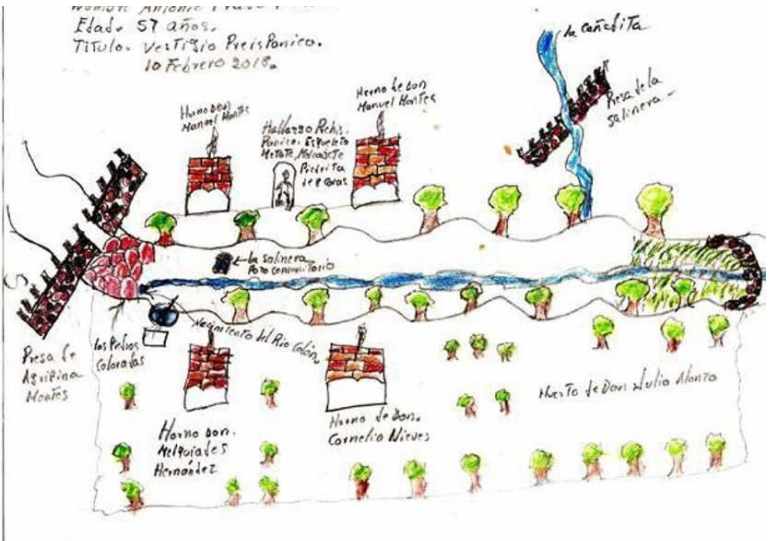 Nombre Antonio
Edad. 57 años.
Titulo. Vestigio Preispanico.
10 Febrero 2018.
la cañadita
Presa de la
salinera
Horno Don
Manuel Montes
Hallazgo Rehis.
Panico. Esqueleto
Metate, Molcajete
Piedrita
de 8 Caras
Horno de Don
Manuel Montes
la salinera
Pozo comunitorio
Presa de
Agripina
Montes
las Peñas
Coloradas
Nacimiento del Rio Colón
Horno Don.
Melquiades
Hernández
Horno de Don.
Cornelio Nieves
Huerto de Don Julio Alonzo